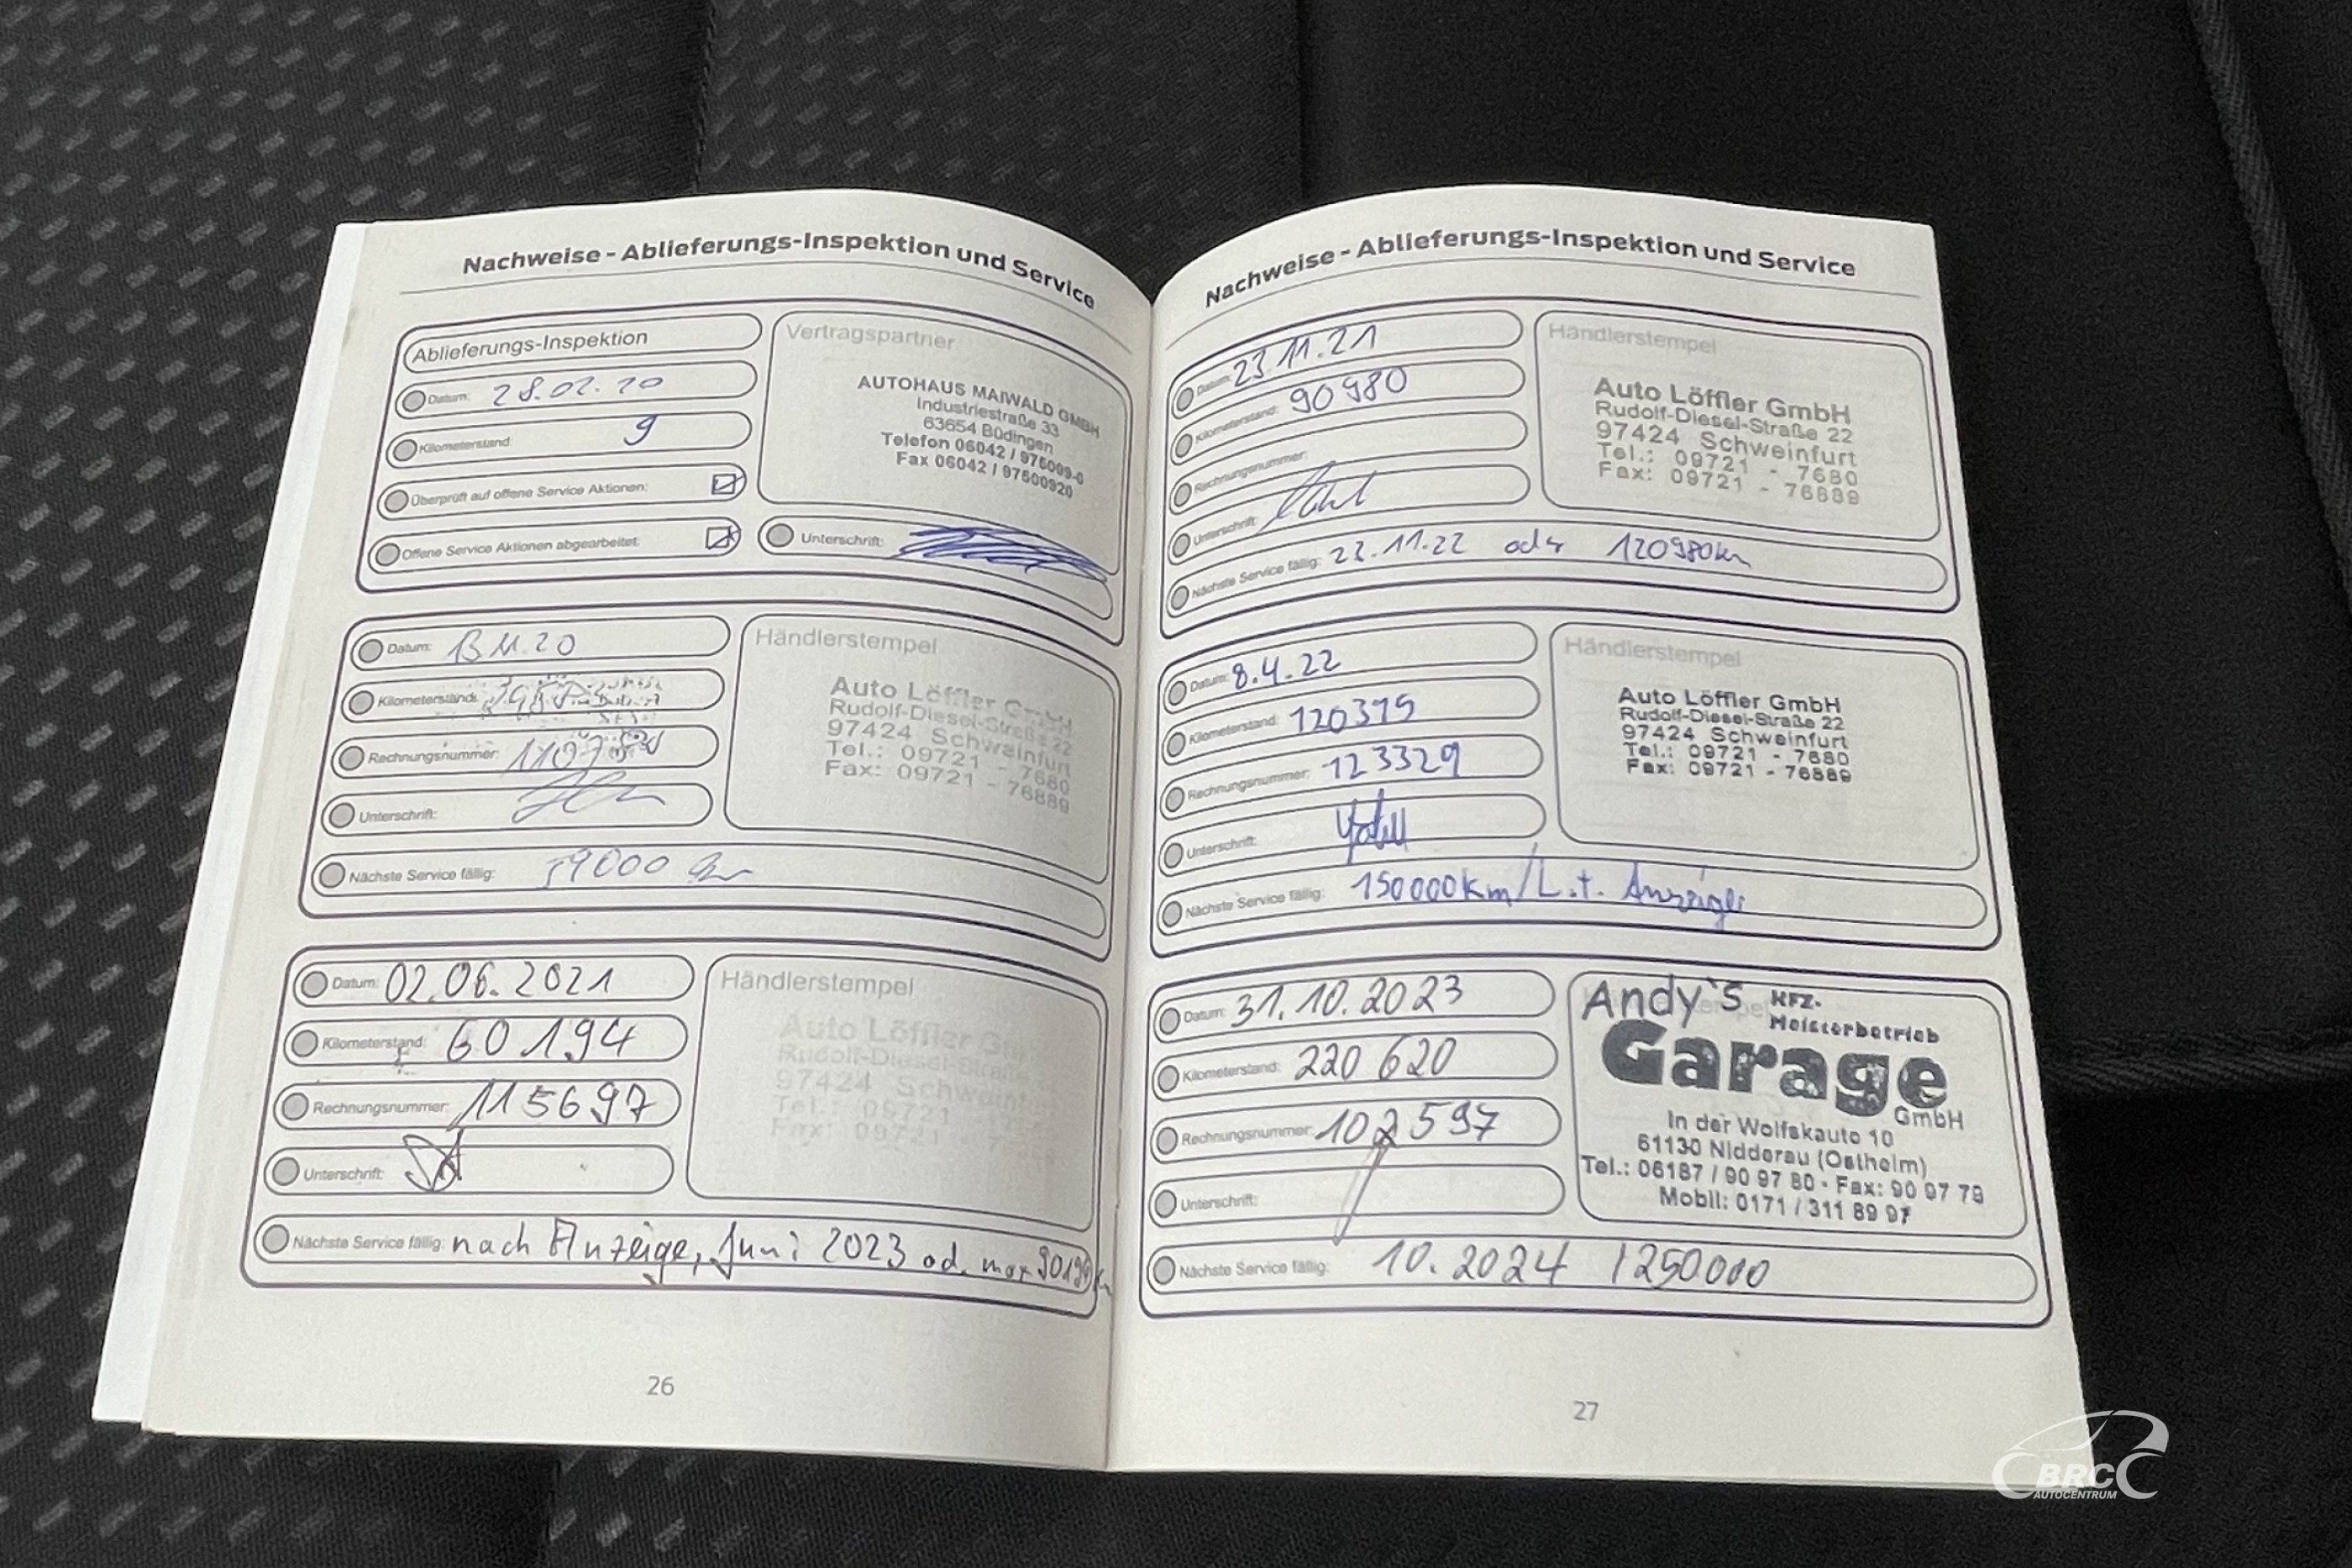 Nachweise - Ablieferungs-Inspektion und Service
Ablieferungs-Inspektion
Datum: 28.02.20
Kilometerstand: 9
Überprüft auf offene Service Aktionen:
Offene Service Aktionen abgearbeitet:
Vertragspartner
AUTOHAUS MAIWALD GMBH
Industriestraße 33
63654 Büdingen
Telefon 06042 / 975009-0
Fax 06042 / 97500920
Unterschrift:
Datum: 13.11.20
Kilometerstand:
Rechnungsnummer:
Unterschrift:
Nächste Service fällig: 59000 km
Händlerstempel
Auto Löffler GmbH
Rudolf-Diesel-Straße 22
97424 Schweinfurt
Tel.: 09721 - 7680
Fax: 09721 - 76889
Datum: 02.06.2021
Kilometerstand: 60194
Rechnungsnummer: 115697
Unterschrift:
Nächste Service fällig: nach Anzeige, Juni 2023 od. max 90194 km
Händlerstempel
Auto Löffler GmbH
Rudolf-Diesel-Straße
97424 Schweinfurt
Tel.: 09721
Fax: 09721
26
Nachweise - Ablieferungs-Inspektion und Service
Datum: 23.11.21
Kilometerstand: 90980
Rechnungsnummer:
Unterschrift:
Nächste Service fällig: 22.11.22 oder 120980km
Händlerstempel
Auto Löffler GmbH
Rudolf-Diesel-Straße 22
97424 Schweinfurt
Tel.: 09721 - 7680
Fax: 09721 - 76889
Datum: 8.4.22
Kilometerstand: 120395
Rechnungsnummer: 123329
Unterschrift:
Nächste Service fällig: 150000km/L.t. Anzeige
Händlerstempel
Auto Löffler GmbH
Rudolf-Diesel-Straße 22
97424 Schweinfurt
Tel.: 09721 - 7680
Fax: 09721 - 76889
Datum: 31.10.2023
Kilometerstand: 220 620
Rechnungsnummer: 102597
Unterschrift:
Nächste Service fällig: 10.2024 1250000
Andy's KFZ-
Meisterbetrieb
Garage
GmbH
In der Wolfskaute 10
61130 Nidderau (Ostheim)
Tel.: 06187 / 90 97 80 - Fax: 90 97 79
Mobil: 0171 / 311 89 97
27
BRC
AUTOCENTRUM